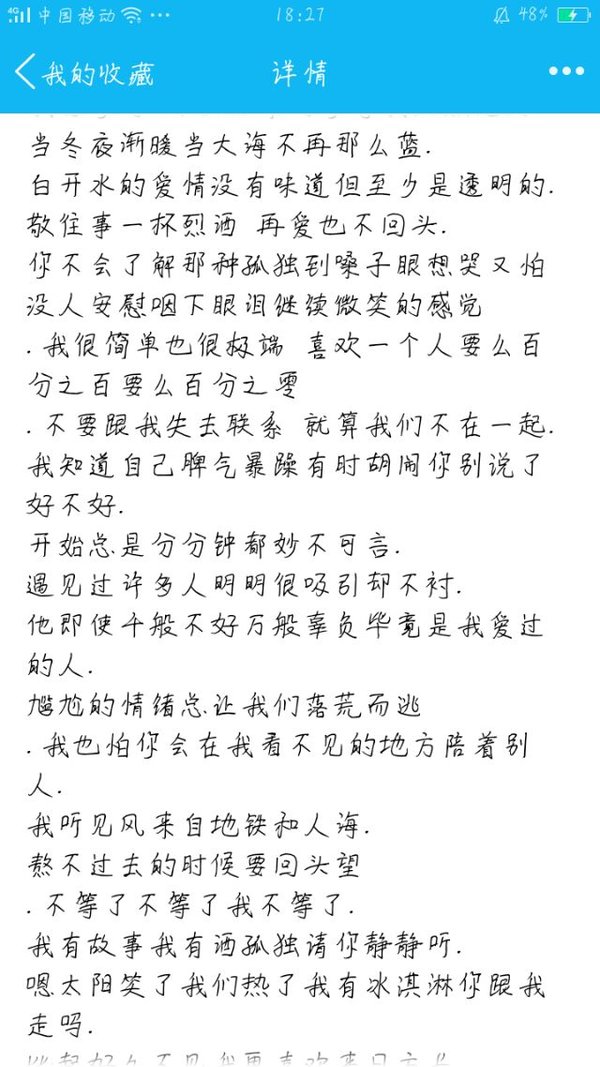 4G 中国移动 18:27 48%
我的收藏 详情
当冬夜渐暖当大海不再那么蓝.
白开水的爱情没有味道但至少是透明的.
敬往事一杯烈酒 再爱也不回头.
你不会了解那种孤独到嗓子眼想哭又怕
没人安慰咽下眼泪继续微笑的感觉
. 我很简单也很极端 喜欢一个人要么百
分之百要么百分之零
. 不要跟我失去联系 就算我们不在一起.
我知道自己脾气暴躁有时胡闹你别说了
好不好.
开始总是分分钟都妙不可言.
遇见过许多人明明很吸引却不衬.
他即使千般不好万般辜负毕竟是我爱过
的人.
尴尬的情绪总让我们落荒而逃
. 我也怕你会在我看不见的地方陪着别
人.
我听见风来自地铁和人海.
熬不过去的时候要回头望
. 不等了不等了我不等了.
我有故事我有酒孤独请你静静听.
嗯太阳笑了我们热了我有冰淇淋你跟我
走吗.
比起好久不见我更喜欢来日方长